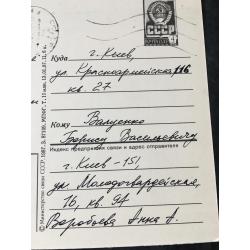 СССР
Куда г. Киев,
ул. Красноармейская, 116
кв. 27
Кому Валуенко
Борису Васильевичу
Индекс предприятия связи и адрес отправителя
г. Киев - 151,
ул. Молодогвардейская,
16, кв. 94
Воробьева Анна А.
© Министерство связи СССР. 1987.